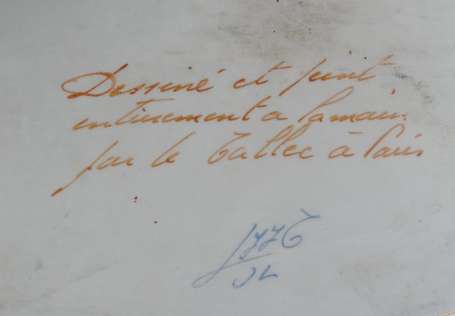 Dessiné et peint
entièrement a la main
par le Tallec à Paris